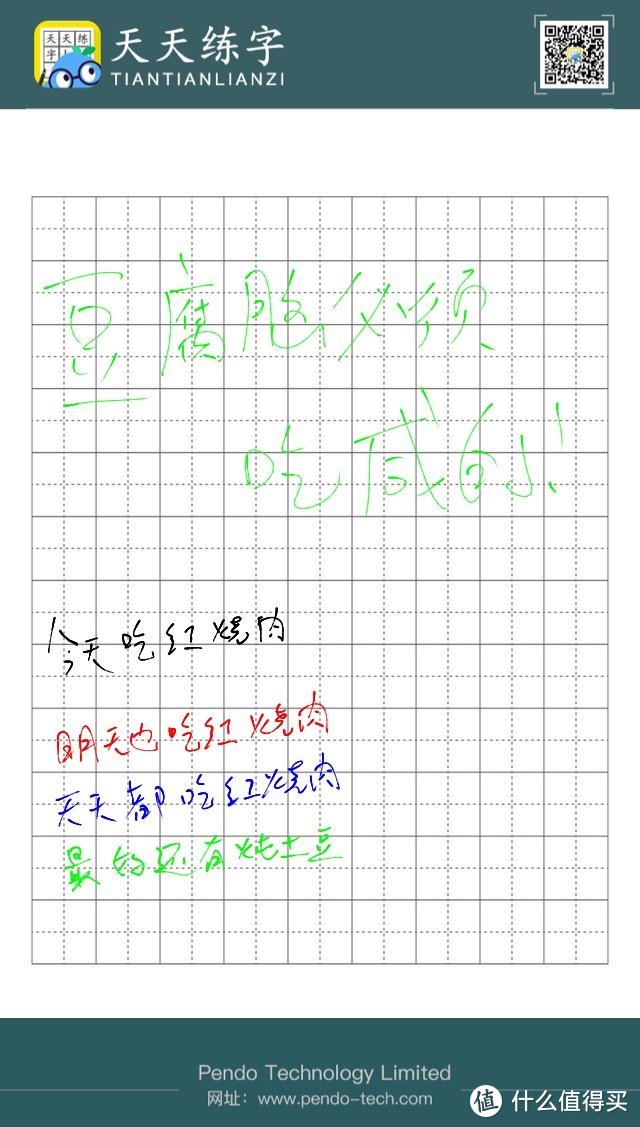 天天练字
TIANTIANLIANZI
豆腐脑必须
吃咸的!
今天吃红烧肉
明天也吃红烧肉
天天都吃红烧肉
最好还有炖土豆
Pendo Technology Limited
网址：www.pendo-tech.com
值 什么值得买